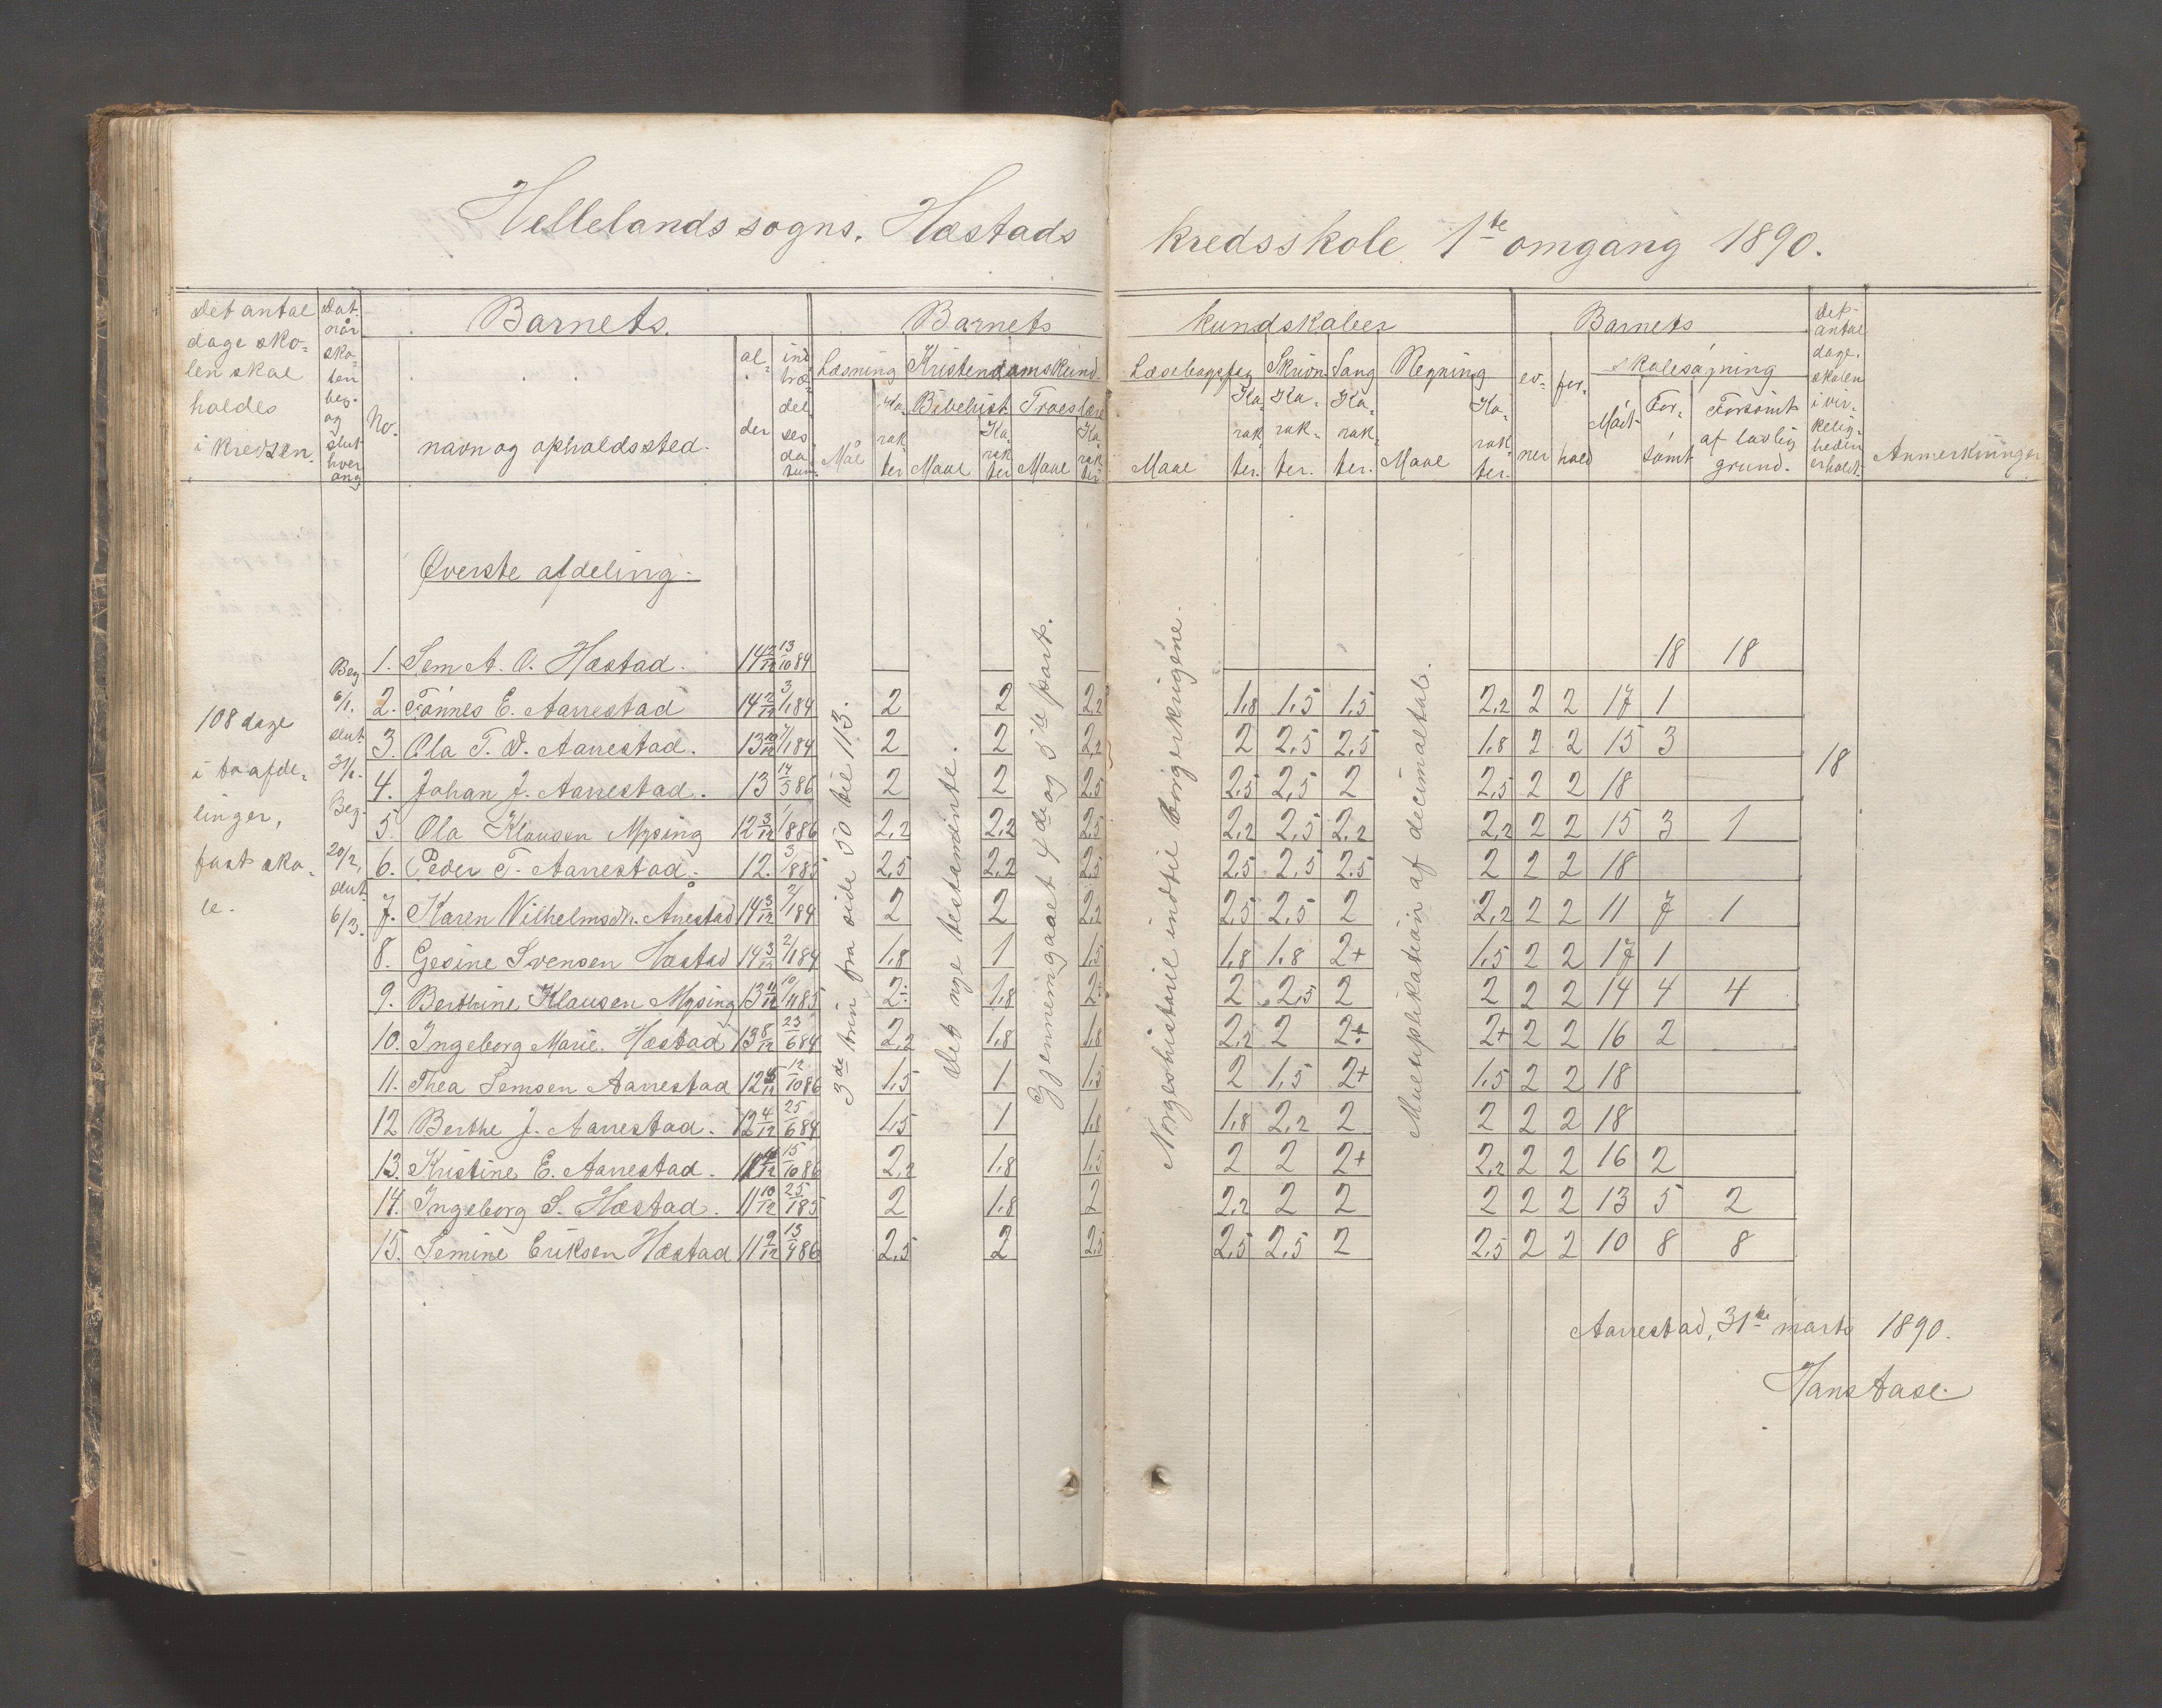 Hellelands sogns. Hæstads kredsskole 1ste omgang 1890.
Det antal dage skolen skal holdes i kredsen.
Dat. når skolen beg. og slut hver gang
No.
Barnets
navn og opholdssted.
alder
indtrædelsesdatum.
Barnets kundskaber
Læsning
Mål
Karakter
Kristendomskund.
Bibelhist.
Maal
Karakter
Troeslære
Maal
Karakter
Læsebogsfag
Maal
Karakter.
Skrivn.
Karakter.
Sang
Karakter.
Regning
Maal
Karakter.
Barnets
evner
forhold
skolesøgning
Mødt
Forsømt
Forsømt af lovlig grund.
Det antal dage, skolen i virkeligheden er holdt.
Anmerkninger
Øverste afdeling.
108 dage
i to afde-
linger,
fast sko-
le.
Beg.
6/1.
slut
31/1.
Beg.
20/2,
slut
6/3.
3de trin fra side 50 til 113.
Det nye testamente.
Gjennemgaaet 4de og 5te part.
Norgeshistorie indtil borgerkrigene.
Multiplikation af decimaltal.
1. Sem A. O. Hæstad. 14 13/10 84 18 18
2. Tønnes E. Aarrestad 14 3/1 84 2 2 2,2 1,8 1,5 1,5 2,2 2 2 17 1
3. Ola T. O. Aarrestad. 13 10/12 7/1 84 2 2 2,2 2 2,5 2,5 1,8 2 2 15 3
18
4. Johan J. Aarrestad. 13 14/5 86 2 2 2,5 2,5 2,5 2 2,5 2 2 18
5. Ola Klausen Mysing 12 3/12 1/8 86 2,2 2,2 2,5 2,2 2,5 2,2 2,2 2 2 15 3 1
6. Peder T. Aarrestad. 12. 3/8 85 2,5 2,2 2,5 2,5 2,5 2,5 2 2 2 18
7. Karen Vilhelmsdr. Årrestad 14 3/12 2/1 84 2 2 2,2 2,5 2,5 2 2,2 2 2 11 7 1
8. Gesine Svensen Hæstad 14 3/12 2/1 84 1,8 1 1,5 1,8 1,8 2+ 1,5 2 2 17 1
9. Berthine Klausen Mysing 13 11/12 10/11 85 2÷ 1,8 2+ 2 2,5 2 2 2 2 14 4 4
10. Ingeborg Marie. Hæstad 13 8/12 23/6 84 2,2 1,8 1,8 2,2 2 2÷ 2+ 2 2 16 2
11. Thea Semsen Aarrestad 12 12/10 86 1,5 1 1,5 2 1,5 2+ 1,5 2 2 18
12 Berthe J. Aarrestad. 12 4/12 25/6 84 1,5 1 1,8 1,8 2,2 2 2 2 2 18
13. Kristine E. Aarrestad. 11 15/10 86 2,2 1,8 1,5 2 2 2+ 2,2 2 2 16 2
14. Ingeborg S. Hæstad. 11 10/12 25/1 85 2 1,8 2 2,2 2 2 2 2 2 13 5 2
15. Semine Eriksen Hæstad 11 9/12 13/4 86 2,5 2 2,5 2,5 2,5 2 2,5 2 2 10 8 8
Aarrestad, 31te marts 1890.
Hans Aase.